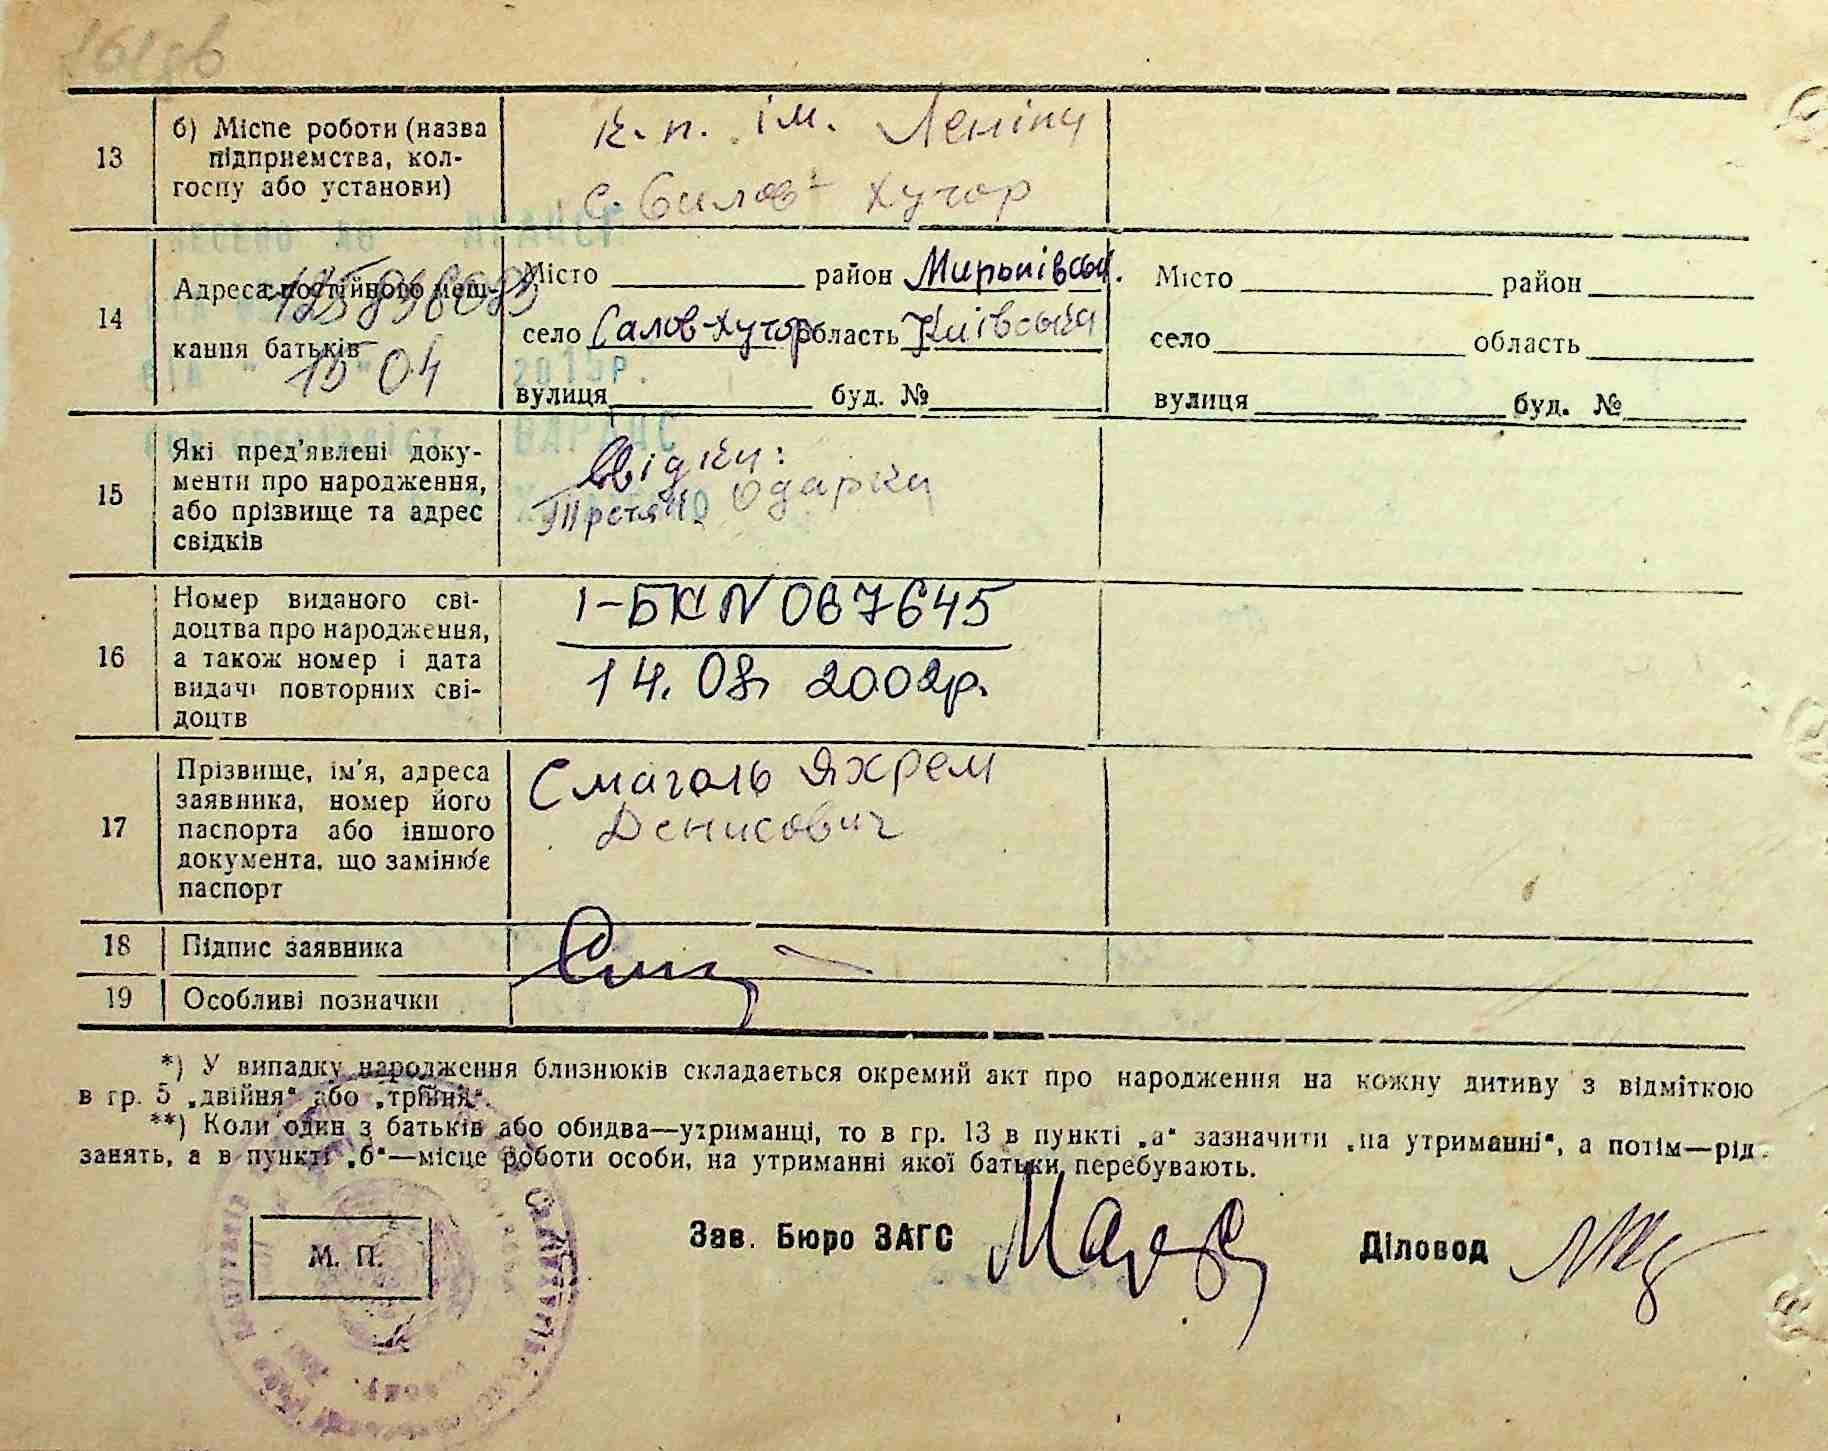 13
б) Місце роботи (назва
підприємства, кол-
госпу або установи)
к.п. ім. Леніна
с. Салов-Хутор
14
Адреса постійного меш-
кання батьків
15 04
2015р.
Місто район Миронівськ.
село Салов-Хутор область Київська
вулиця буд. №
Місто район
село область
вулиця буд. №
15
Які пред'явлені доку-
менти про народження,
або прізвище та адрес
свідків
Свідки:
Одарка
16
Номер виданого сві-
доцтва про народження,
а також номер і дата
видачі повторних сві-
доцтв
І-БК N 067645
14.08 2002р.
17
Прізвище, ім'я, адреса
заявника, номер його
паспорта або іншого
документа, що замінює
паспорт
Смаголь Яхрем
Денисович
18
Підпис заявника
19
Особливі позначки
*) У випадку народження близнюків складається окремий акт про народження на кожну дитину з відміткою
в гр. 5 „двійня“ або „трійня“.
**) Коли один з батьків або обидва—утриманці, то в гр. 13 в пункті „а“ зазначити „на утриманні“, а потім—рід
занять, а в пункті „б“—місце роботи особи, на утриманні якої батьки перебувають.
М. П.
Зав. Бюро ЗАГС
Діловод